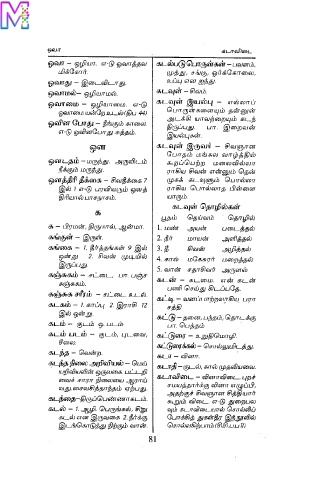 ஓவா
கடாவிடை
ஓவா – ஒழியா. எ-டு ஓவாத்தவ
மிக்கோர்.
ஓவாது – இடைவிடாது.
ஓவாமல் – ஒழியாமல்.
ஓவாமை – ஒழியாமை. எ-டு
ஓவாமை யன்றே உடல் (திப 44)
ஓவின போது – நீங்கும் காலை.
எ-டு ஓவினபோது சுத்தம்.
ஔ
ஔடதம் – மருந்து. அருவிடம்
நீக்கும் மருந்து.
ஔத்திரி தீக்கை – சிவதீக்கை 7
இல் 1 எ-டு பரவிவரும் ஔத்
திரியால் பாசநாசம்.
க
க – பிரமன், திருமால், ஆன்மா.
கங்குள் – இருள்.
கங்கை – 1. தீர்த்தங்கள் 9 இல்
ஒன்று 2. சிவன் முடியில்
இருப்பது.
கஞ்சுகம் – சட்டை பா. பஞ்ச
கஞ்சுகம்.
கஞ்சுக சரீரம் – சட்டை உடல்.
கடகம் – 1. காப்பு 2. இராசி 12
இல் ஒன்று.
கடம் – குடம் ஒ. படம்
கடம் படம் – குடம், புடவை,
சீலை.
கடந்த – வென்ற.
கடந்த நிலை அறிவியல் – மெய்
யறிவியலின் ஒருவகை பட்டறி
வைச் சாரா நிலையை ஆராய்
வது. சைவசித்தாந்தம் ஏற்பது.
கடந்தை – திருப்பெண்ணாகடம்.
கடல் – 1. ஆழி. பெருங்கல், சிறு
கடல் என இருவகை 2. நீர்க்கு
இடங்கொடுத்து நிற்கும் வான்.
கடல்படு பொருள்கள் – பவளம்,
முத்து, சங்கு, ஓர்க்கோலை,
உப்பு என ஐந்து
கடவுள் – சிவம்.
கடவுள் இயல்பு – எல்லாப்
பொருள்களையும் தன்னுள்
அடக்கி யாவற்றையும் கடந்
திருப்பது. பா. இறைவன்
இயல்புகள்.
கடவுள் இருவர் – சிவஞான
போதம் மங்கல வாழ்த்தில்
கூறப்பெற்ற மலைவில்லா
ராகிய சிவன் என்னும் தென்
முகக் கடவுளும் பொல்லார
ராகிய பொல்லாத பிள்ளை
யாரும்.
கடவுள் தொழில்கள்
பூதம் தெய்வம் தொழில்
1. மண் அயன் படைத்தல்
2. நீர் மாயன் அளித்தல்
3. தீ சிவன் அழித்தல்
4. கால் மகேசுரர் மறைத்தல்
5. வான் சதாசிவர் அருளல்
கடன் – கடமை. என் கடன்
பணி செய்து கிடப்பதே.
கட்டி – வனப்பாற்றலாகிய பரா
சத்தி
கட்டு – தளை, பந்தம், தொடக்கு
பா. பெத்தம்
கட்டுரை – உறுதிமொழி.
கட்டுரைக்கல் – சொல்லுமிடத்து.
கடா – வினா.
கடாதி – குடல், கால் முதலியவை.
கடாவிடை – வினாவிடை. புறச்
சமயத்தார்க்கு வினா எழுப்பி,
அதற்குச் சிவஞான சித்தியார்
கூறும் விடை. எ-டு துறைபல
வும் கடாவிடையால் சொல்லிப்
போக்கித் துகள்தீர இந்நூலில்
சொல்லகிற்பாம் (சிசி.ப.ப.8)
81